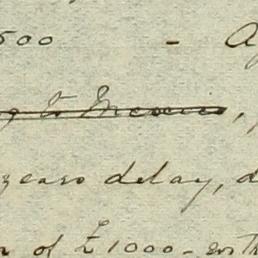 500 - A
g to Mexico,
years delay, d
of £1000 -